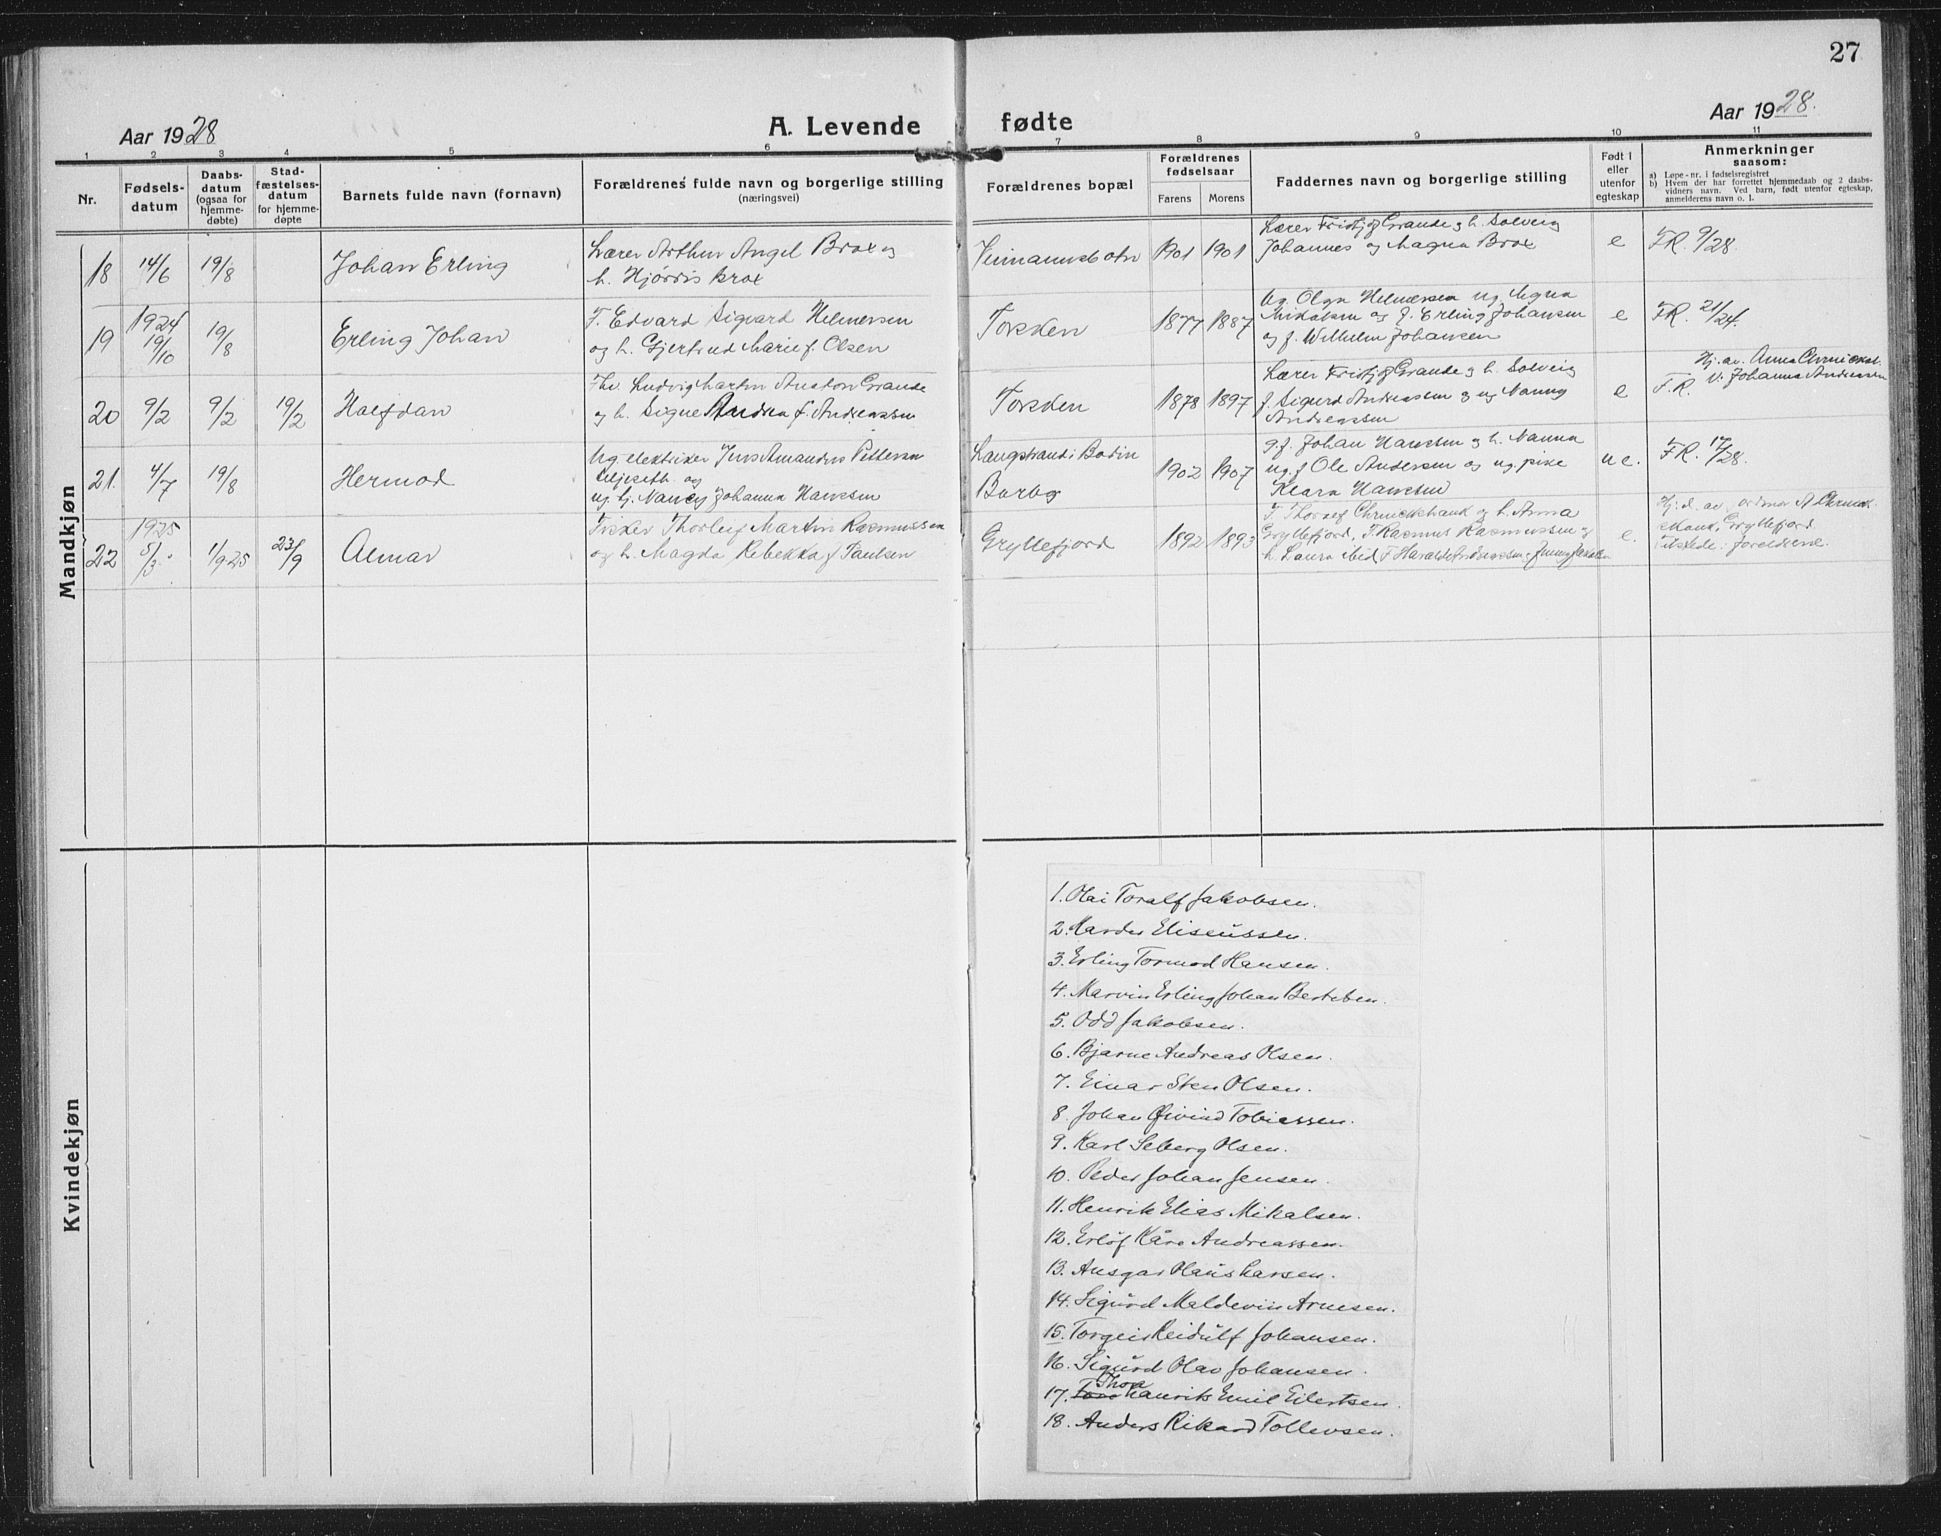 27
Aar 1928
A. Levende fødte
Aar 1928.
1 2 3 4 5 6 7 8 9 10 11
Nr.
Fødsels-
datum
Daabs-
datum
(ogsaa for
hjemme-
døbte)
Stad-
fæstelses-
datum
for hjemme-
døpte
Barnets fulde navn (fornavn)
Forældrenes fulde navn og borgerlige stilling
(næringsvei)
Forældrenes bopæl
Forældrenes
fødselsaar
Farens Morens
Faddernes navn og borgerlige stilling
Født i
eller
utenfor
egteskap
Anmerkninger
saasom:
a) Løpe-nr. i fødselsregistret
b) Hvem der har forrettet hjemmedaab og 2 daabs-
vidners navn. Ved barn, født utenfor egteskap,
anmelderens navn o. l.
Mandkjøn
18 14/6 19/8 Johan Erling
Lærer Arthur Angel Brox og
h. Hjørdis Brox
1901 1901
Lærer Fridtjof Grande og h. Solveig
Johannes og Magna Brox
e FR. 9/28.
19 1924 19/10 19/8 Erling Johan
F. Edvard Sigvard Helmersen
og h. Gjertrud Marie f. Olsen
Torsken 1877 1887
Ug. Olga Helmersen ug. Agna
Mikalsen og f. Erling Johansen
og f. Wilhelm Johansen
e FR. 21/24.
20 9/2 9/2 19/2 Halfdan
Ludvig Martin Anton Grande
og h. Signe Andrea f. Andreassen
Torsken 1878 1897
Lærer Fridtjof Grande og h. Solveig
f. Sigurd Andreassen og ug Nanny
Andreassen
e F.R.
Hj. av. Anna
v. Johanna Andreassen
21. 4/7 19/8 Hermod
Ug elektriker Jens Amandus Pettersen
og
ug. tj. Nancy Johanna Hansen
Langstrand i Bodin
1902 1907
g.f. Johan Hansen og h. Nanna
ug. f Ole Andersen og ug. pike
Klara Hansen
u e. FR. 17/28.
22 1925 5/3. 1/9 25 23/9 Almar
Fisker Thorleif Martin Rasmussen
og h. Magda Rebekka f Paulsen
Gryllefjord 1892 1893
F. Thoralf Chruickshank og h. Anna
Gryllefjord, F. Rasmus Rasmussen og
h. Laura
e.
Hj. d. av
Gryllefjord.
Tilstede: foreldrene.
Kvindekjøn
1. Olai Toralf Jakobsen.
2. Hardus Eliseussen.
3. Erling Tormod Hansen.
4. Marvin Erling Johan Berteben.
5. Odd Jakobsen.
6. Bjarne Andreas Olsen.
7. Einar Sten Olsen.
8. Johan Øivind Tobiassen.
9. Karl Seberg Olsen.
10. Peder Johan Jensen.
11. Henrik Elias Mikalsen.
12. Erlöf Kåre Andreassen.
13. Ansgar Olaus Larsen.
14. Sigurd Maldevin Arnesen.
15. Torgeir Reidulf Johansen.
16. Sigurd Olav Johansen.
Thor
17. Tore Laurits Emil Eilertsen.
18. Anders Rikard Tollevsen.